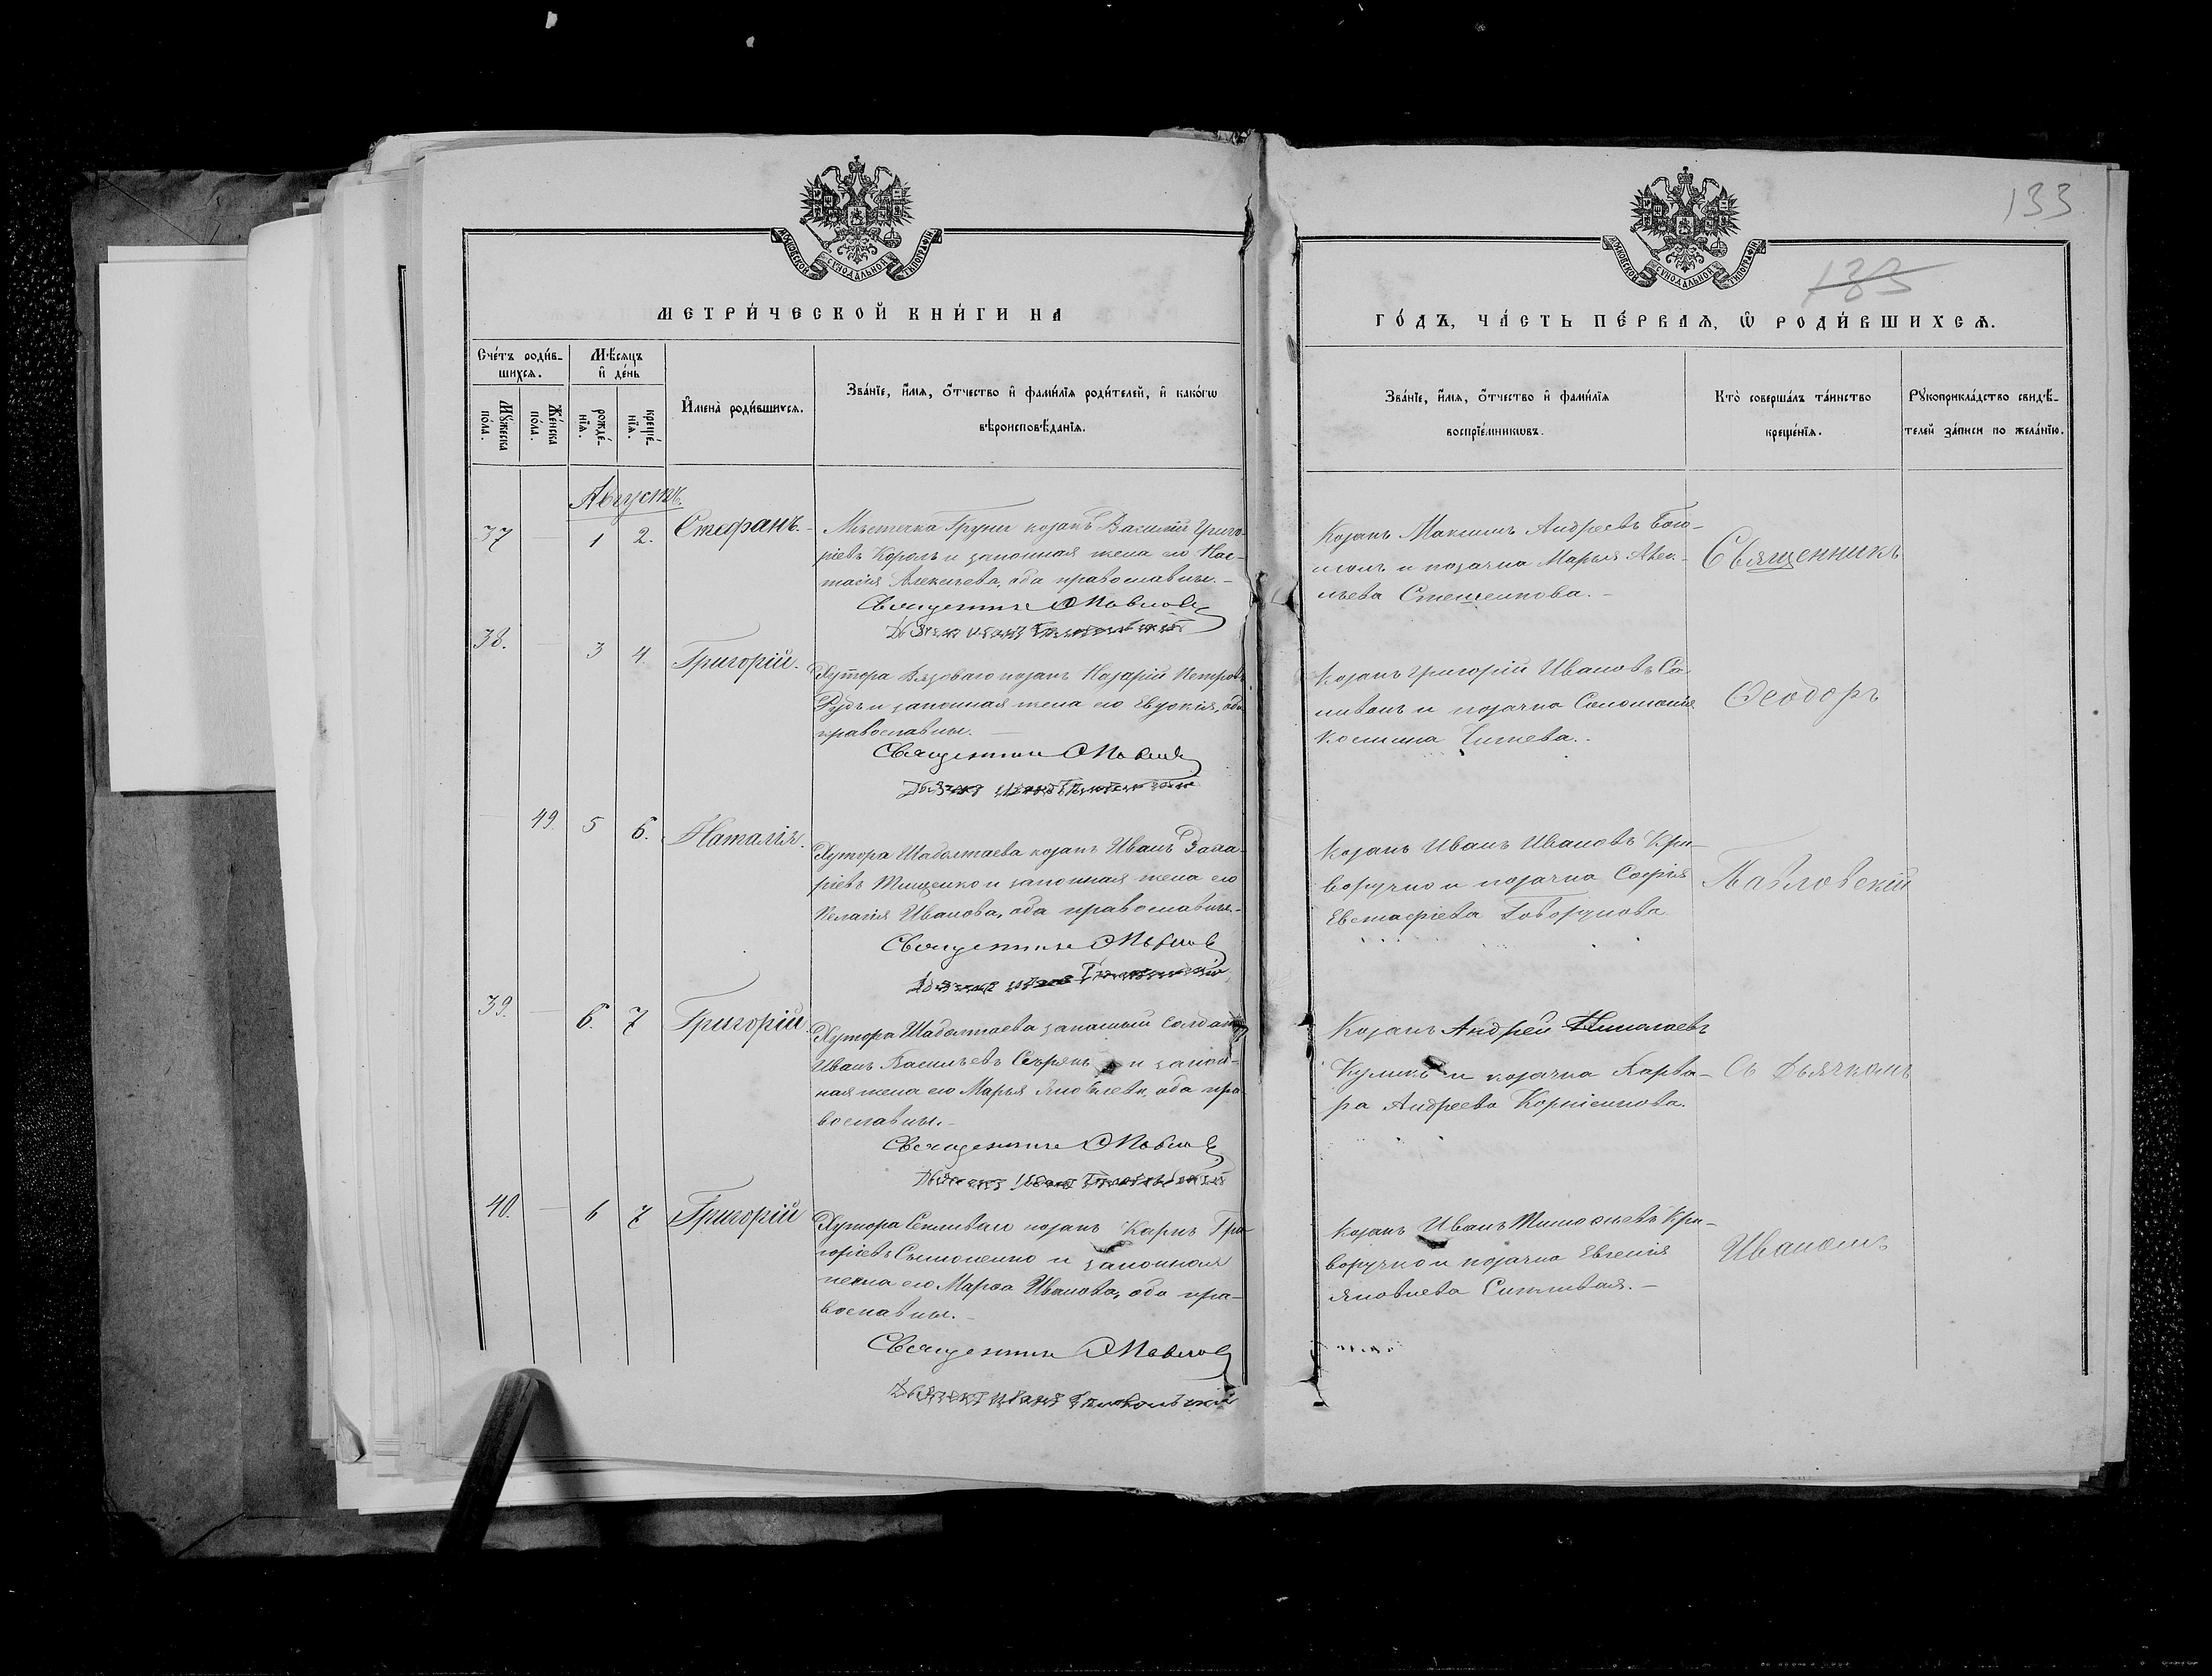 133
МОСКОВСКОЙ СѴНОДАЛЬНОЙ ТИПОГРАФІИ
МОСКОВСКОЙ СѴНОДАЛЬНОЙ ТИПОГРАФІИ
133
МЕТРИ́ЧЕСКОЙ КНИ́ГИ НА
ГО́ДЪ, ЧА́СТЬ ПЕ́РВАѦ, Ѡ҆ РОДИ́ВШИХСѦ.
Сче́тъ роди́в-
шихсѧ.
Мꙋ́жеска
по́ла.
Же́нска
по́ла.
Мѣ́сѧцъ
и҆ де́нь
рожде́-
нїѧ.
креще́-
нїѧ.
И҆мена̀ роди́вшихсѧ.
Зва́нїе, и҆́мѧ, ѻ҆́тчество и҆ фами́лїѧ роди́телей, и҆ како́гѡ
вѣроисповѣ́данїѧ.
Зва́нїе, и҆́мѧ, ѻ҆́тчество и҆ фами́лїѧ
воспрїе́мникѡвъ.
Кто̀ соверша́лъ та́инство
креще́нїѧ.
Рꙋкоприкла́дство свидѣ́-
телей за́писи по жела́нїю.
Августъ.
37 - 1 2. Стефанъ.-
Мѣстечка Груни козакъ Василий Григо-
ріевъ Король и законная жена его Нас-
тасія Алексѣева, оба православны.-
Священникъ Ѳ Павловск
Дьячекъ Иванъ
Козакъ Максимъ Андреевъ
и козачка Марья
Священникъ
38. - 3 4. Григорій.
Хутора Вязоваго козакъ Назарій Петровъ
Рудь и законная жена его Евдокія, оба
православны. -
Священникъ Ѳ Павловск
Дьячекъ Иванъ
Козакъ Григорій Ивановъ
и козачка Соломонія
Ѳеодоръ
- 49. 5 6. Наталія.
Хутора Шабалтаева козакъ Иванъ Заха-
ріевъ Тищенко и законная жена его
Пелагія Иванова, оба православны.-
Священникъ Ѳ Павловск
Дьячекъ Иванъ
Козакъ Иванъ Ивановъ Кри-
воручко и козачка Софія
Евстафіева Говорунова.
Павловскій
39. - 6. 7 Григорій
Хутора Шабалтаева запасный солдатъ
Иванъ Васильевъ и закон-
ная жена его Марья Яковлева, оба пра-
вославны.-
Священникъ Ѳ Павловск
Дьячекъ Иванъ
Козакъ Андрей Николаевъ
Куликъ и козачка Варва-
ра Андреева Корніенкова.
съ Дьячкомъ
40. - 6 7 Григорій
Хутора козакъ Карпъ Гри-
горіевъ и законная
жена его Марѳа Иванова, оба пра-
вославны.-
Священникъ Ѳ Павловск
Дьячекъ Иванъ
Козакъ Иванъ Тимофѣевъ Кри-
воручко и козачка Евгенія
Яковлева
Иваномъ